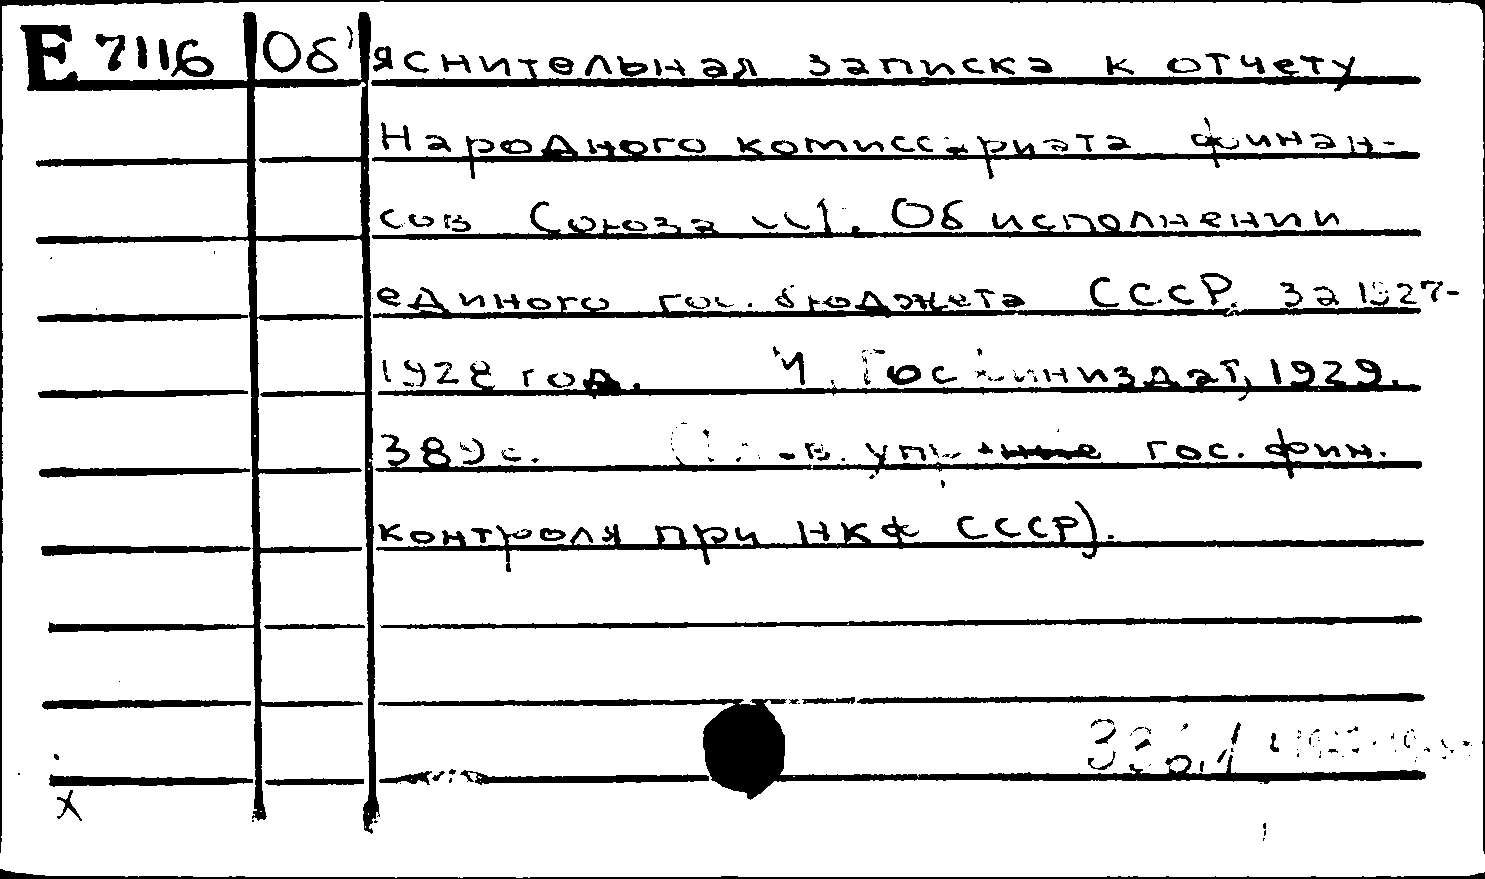 Е 7116 Об'яснительная записка к отчету
Народного комиссариата финан-
сов Союза ССР. Об исполнении
единого гос. бюджета СССР. за 1927-
1928 год. М. Госфиниздат, 1929.
389 с. упр гос. фин.
контроля при НКФ СССР).
336.1
x